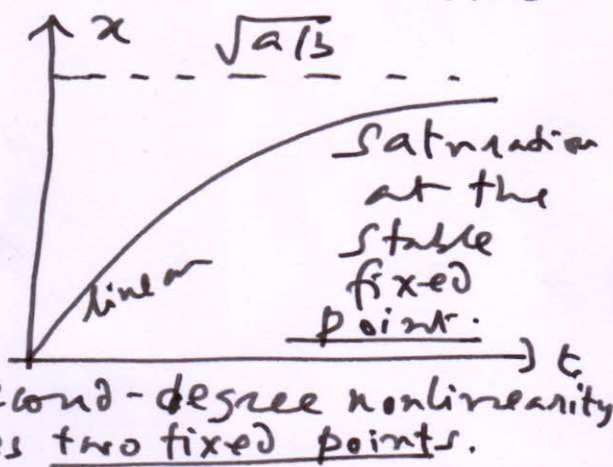 x
√a/b
saturation
at the
stable
fixed
point.
linear
t
second-degree nonlinearity
two fixed points.